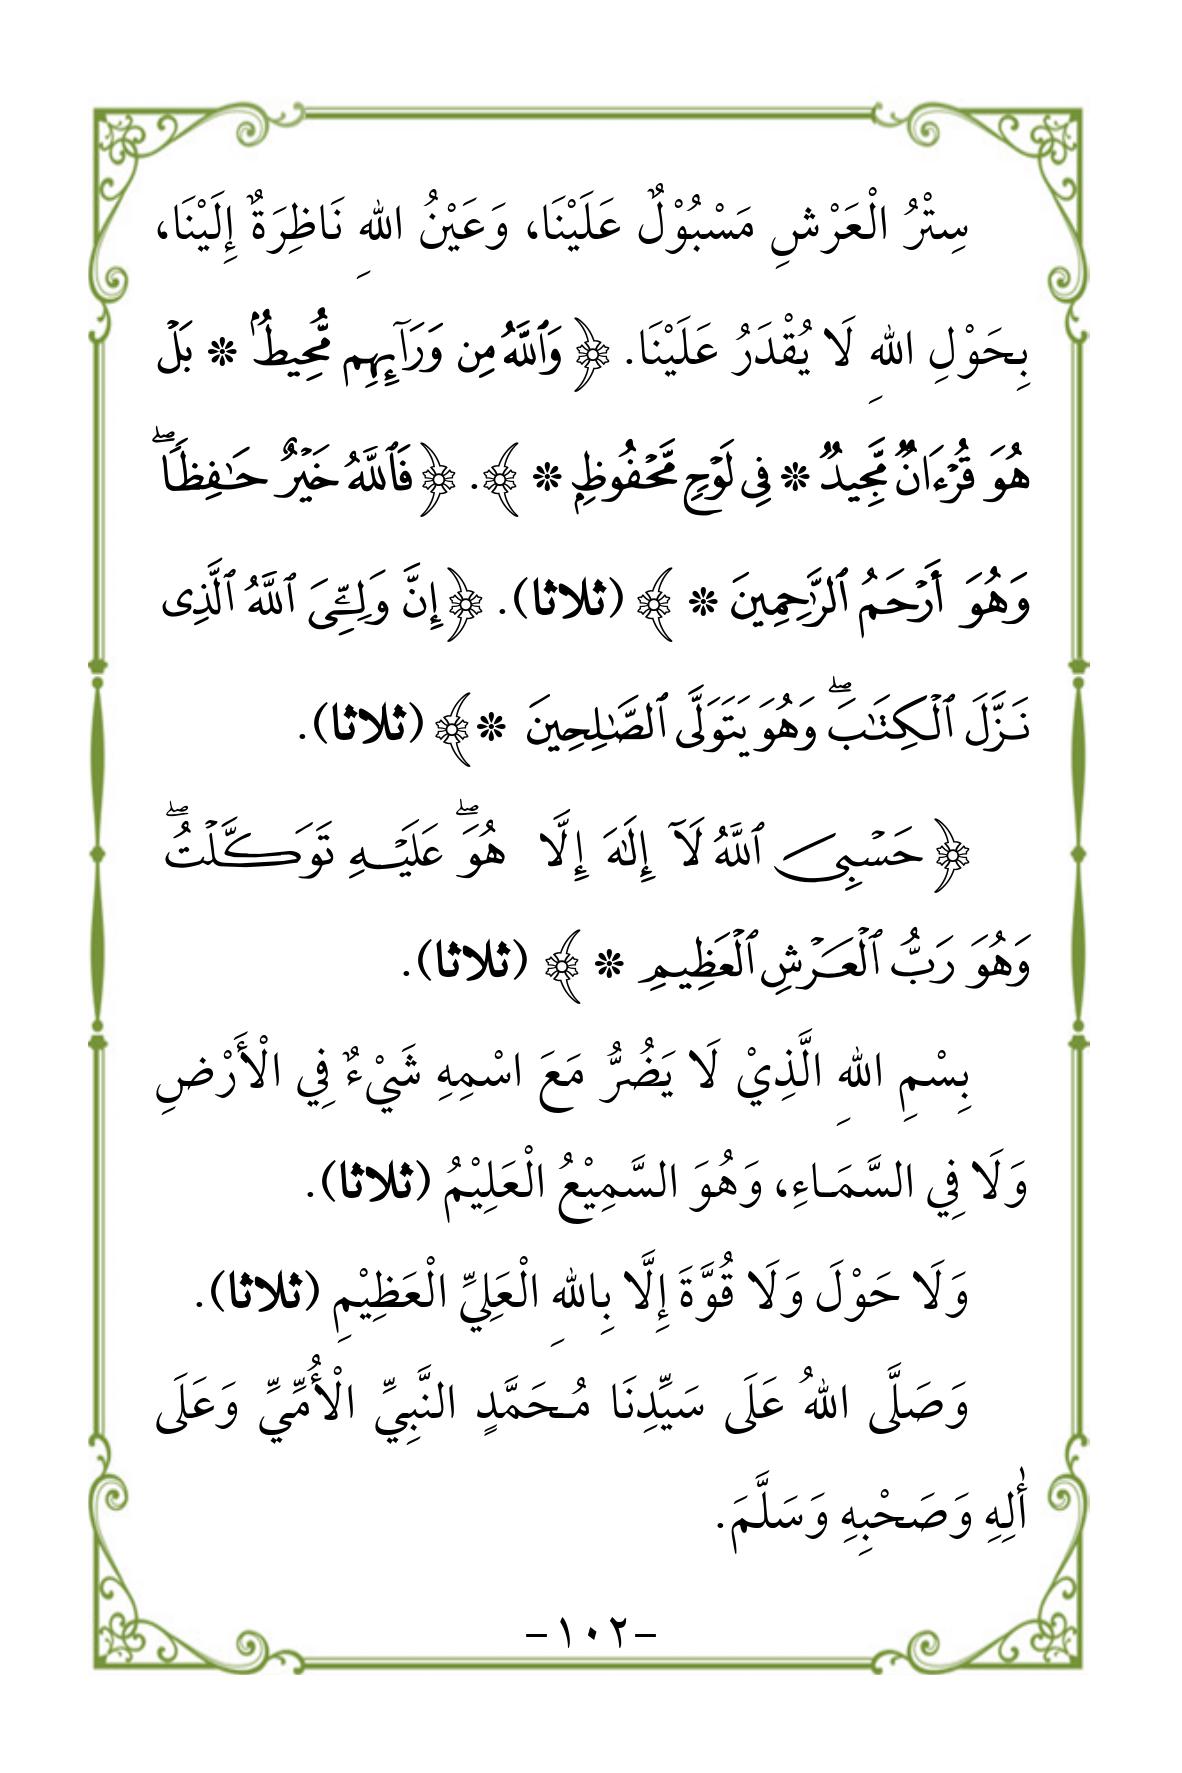 سِتْرُ الْعَرْشِ مَسْبُوْلٌ عَلَيْنَا، وَعَيْنُ اللهِ نَاظِرَةٌ إِلَيْنَا،
بِحَوْلِ اللهِ لَا يُقْدَرُ عَلَيْنَا. ﴿ وَٱللَّهُ مِن وَرَآئِهِم مُّحِيطُۢ * بَلْ
هُوَ قُرْءَانٌ مَّجِيدٌ * فِى لَوْحٍ مَّحْفُوظٍۭ * ﴾. ﴿فَٱللَّهُ خَيْرٌ حَـٰفِظًاۖ
وَهُوَ أَرْحَمُ ٱلرَّٰحِمِينَ * ﴾ (ثلاثا). ﴿إِنَّ وَلِـِّۧىَ ٱللَّهُ ٱلَّذِى
نَزَّلَ ٱلْكِتَـٰبَۖ وَهُوَ يَتَوَلَّى ٱلصَّـٰلِحِينَ *﴾ (ثلاثا).
﴿حَسْبِىَ ٱللَّهُ لَآ إِلَـٰهَ إِلَّا هُوَۖ عَلَيْهِ تَوَكَّلْتُۖ
وَهُوَ رَبُّ ٱلْعَرْشِ ٱلْعَظِيمِ * ﴾ (ثلاثا).
بِسْمِ اللهِ الَّذِيْ لَا يَضُرُّ مَعَ اسْمِهِ شَيْءٌ فِي الْأَرْضِ
وَلَا فِي السَّمَاءِ، وَهُوَ السَّمِيْعُ الْعَلِيْمُ (ثلاثا).
وَلَا حَوْلَ وَلَا قُوَّةَ إِلَّا بِاللهِ الْعَلِيِّ الْعَظِيْمِ (ثلاثا).
وَصَلَّى اللهُ عَلَى سَيِّدِنَا مُحَمَّدٍ النَّبِيِّ الْأُمِّيِّ وَعَلَى
أٰلِهِ وَصَحْبِهِ وَسَلَّمَ.
-١٠٢-